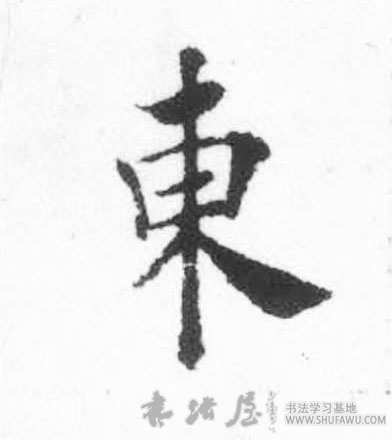 東
书法屋
书法学习基地
WWW.SHUFAWU.COM